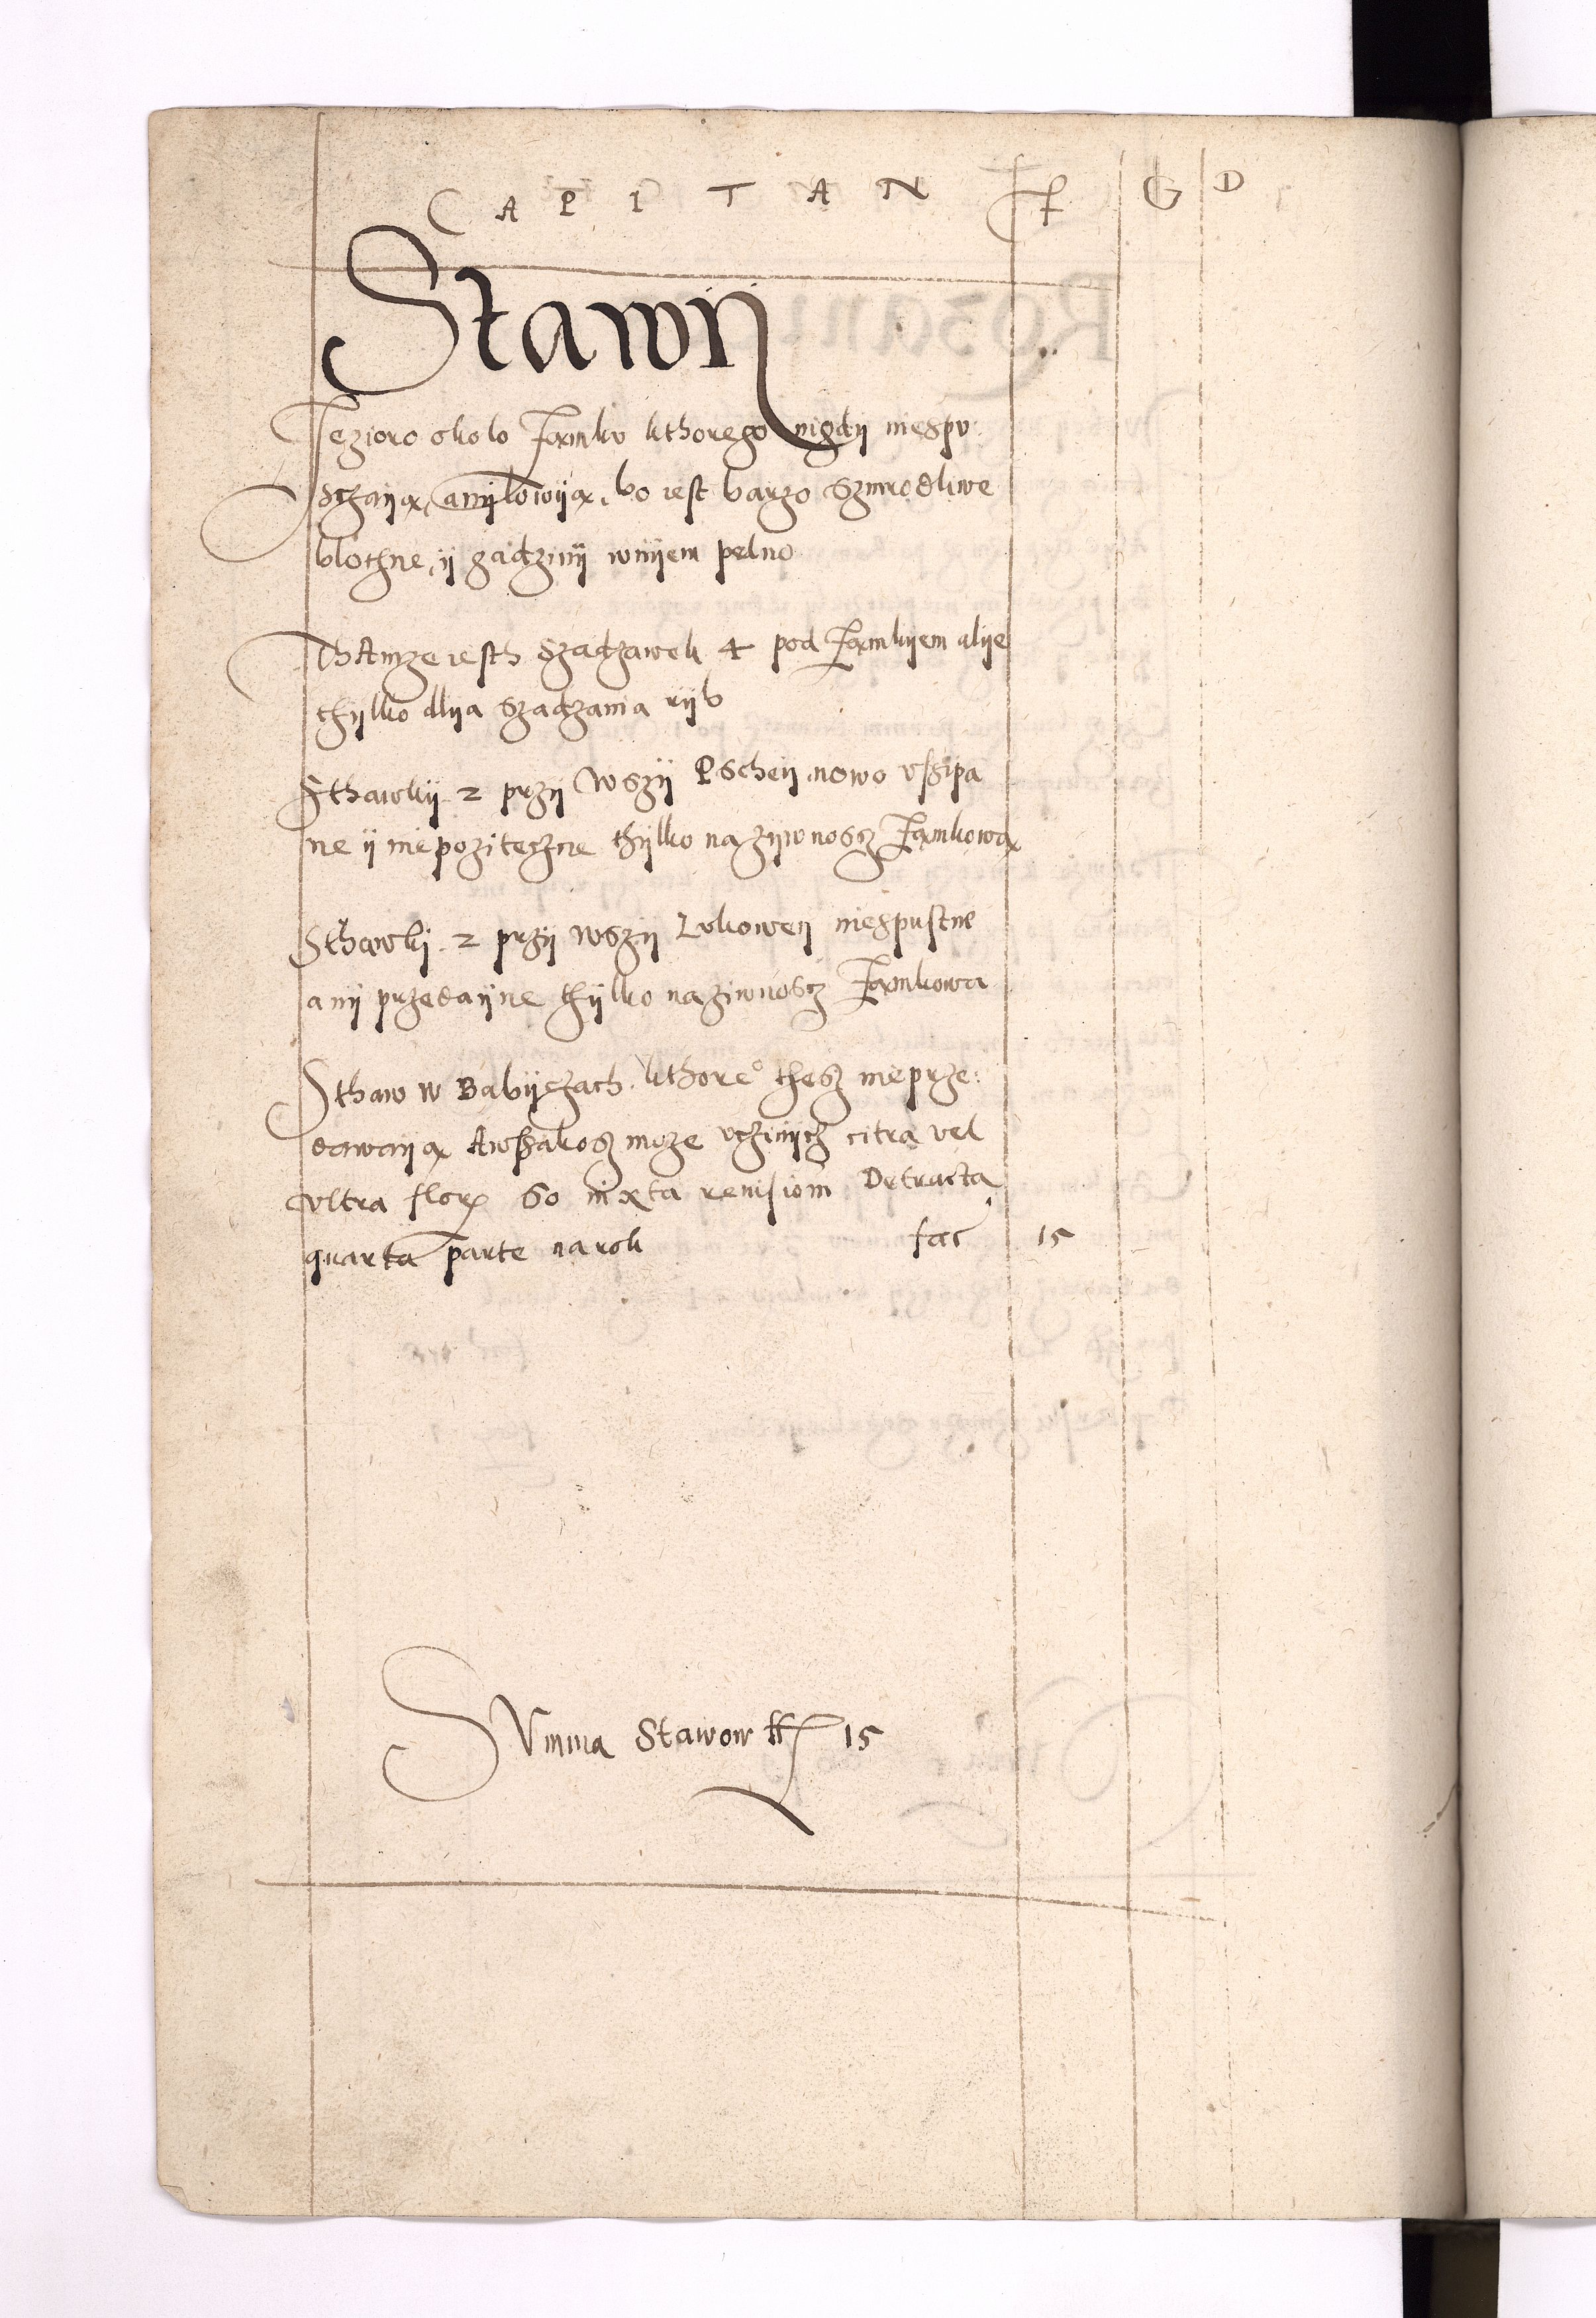 CAPITAN F G D
Stawÿ
Jezioro okolo Zamku kthorego nigdÿ niespu:
sczaÿą, anÿ lowiÿą, bo iest barzo szmrodliwe
blothne, ÿ gadzinÿ wnÿem pelno
Thamze iesth Szadzawek 4 pod Zamkÿem alÿe
thÿlko dlÿa szadzania rÿb
Sthawkÿ 2 przÿ Wszÿ Pscheÿ nowo vssipa
ne ÿ niepoziteczne thÿlko na zÿwnoscz Zamkową
Sthawki 2 przÿ Wszÿ Lukoweÿ niespustne
anÿ przedaÿne thÿlko na ziwnoscz Zamkowa
Sthaw w Babÿczach kthore° thesz nieprze:
dawaÿą Awszakosz moze vczinÿcz citra vel
vltra flor 60 iuxta reuisiom Detracta
quarta parte na rok fac 15
Summa Stawow ff 15